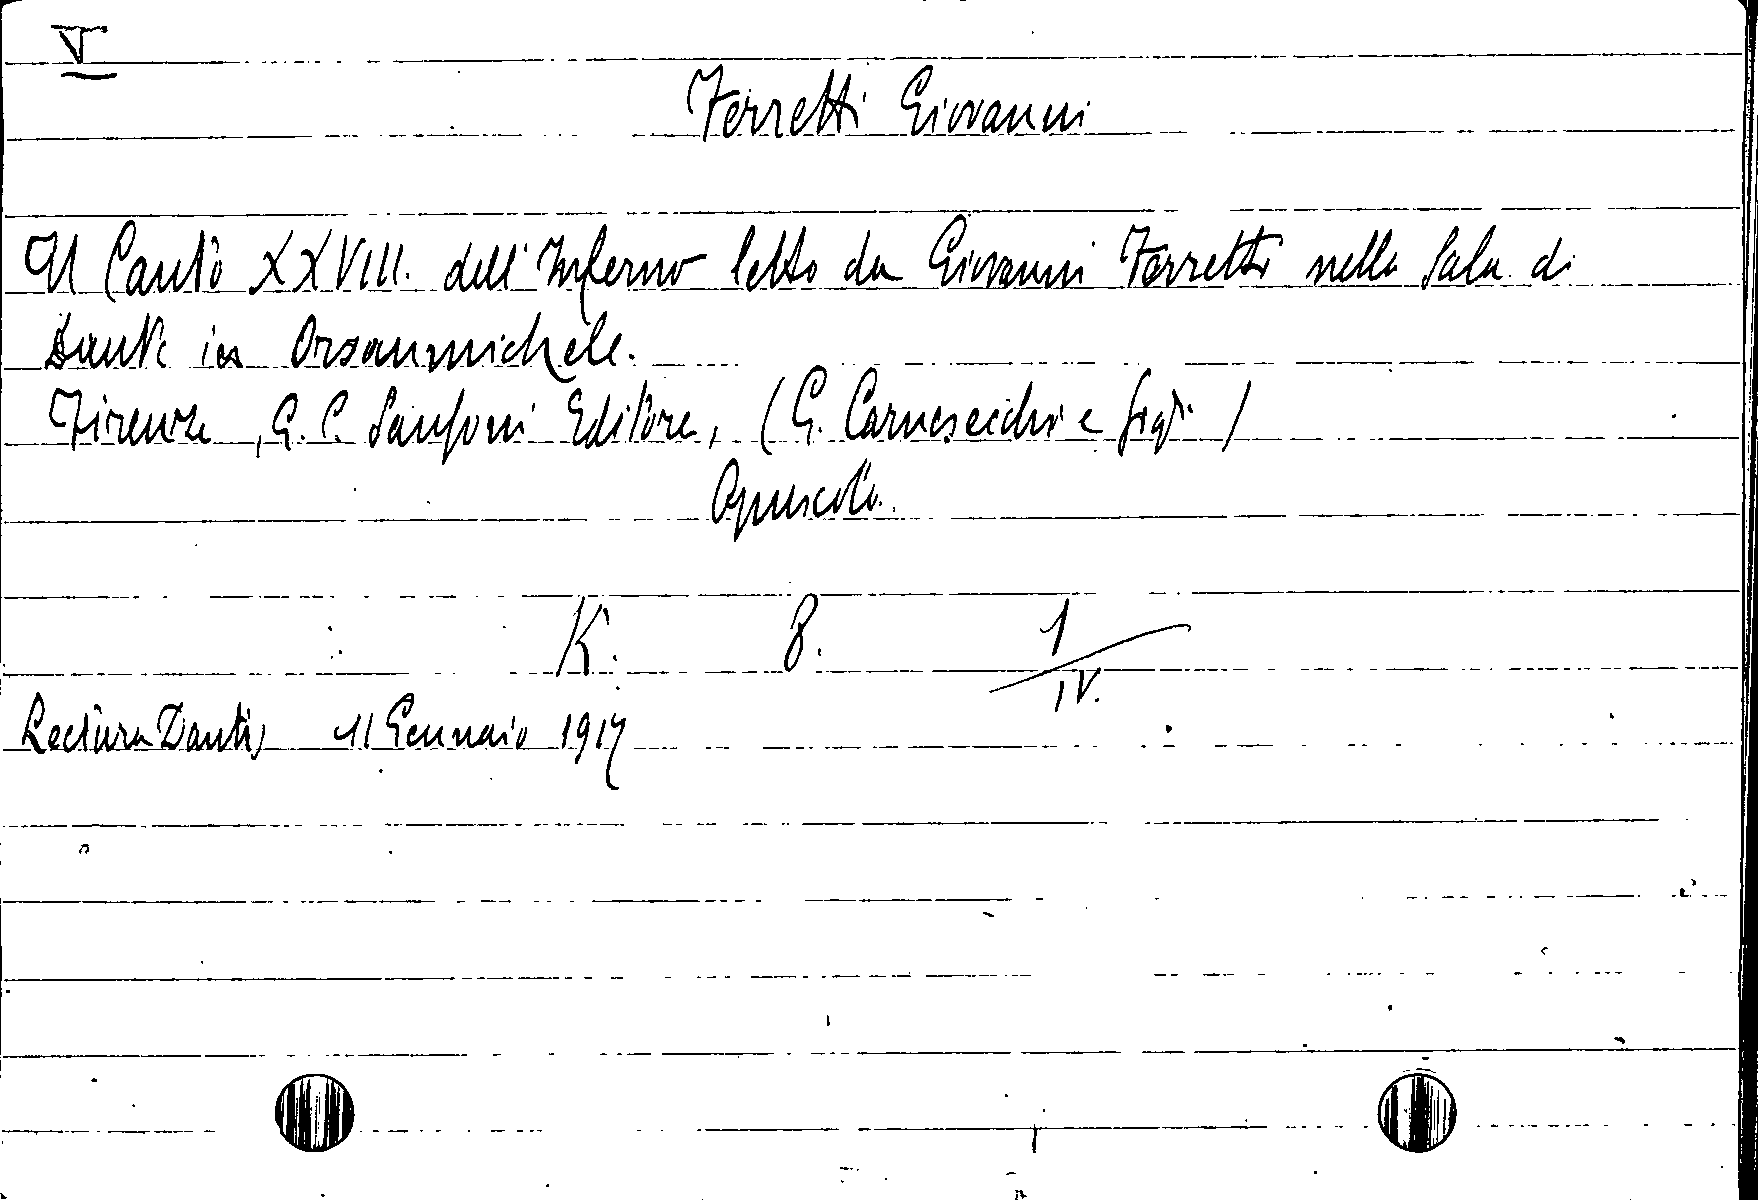 V
Ferretti Giovanni
Il Canto XXVIII. dell'Inferno letto da Giovanni Ferretti nella Sala di
Dante in Orsanmichele.
Firenze, G. C. Sansoni Editore, (G. Carnesecchi e figli)
Opuscolo.
K. 8. 1/IV.
Lectura Dantis 11 Gennaio 1917